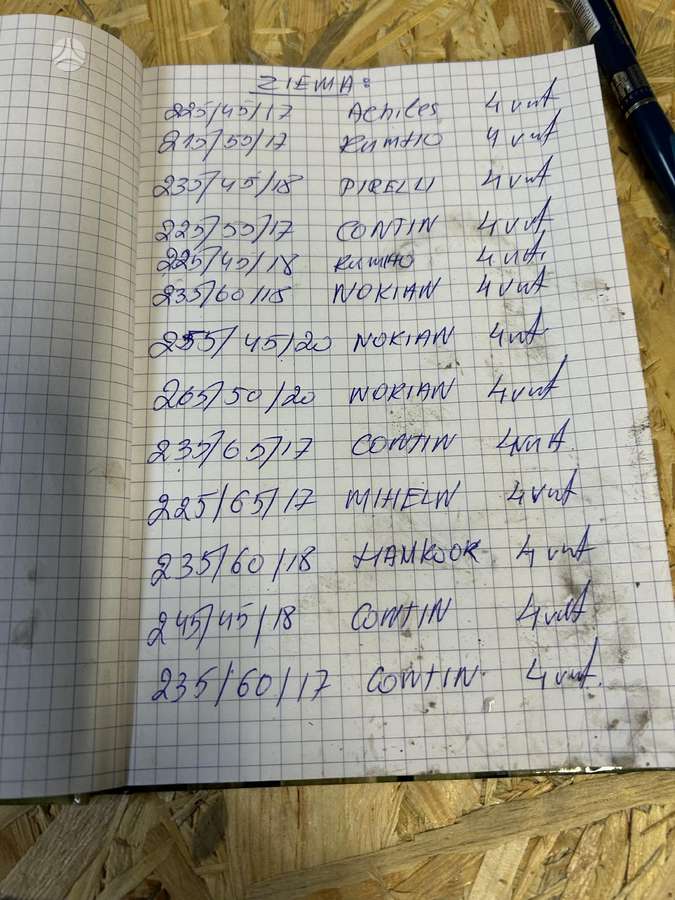 ZIEMA:
225/45/17 Achiles 4 vnt
215/55/17 KUMHO 4 vnt
235/45/18 PIRELLI 4 vnt
225/55/17 CONTIN 4 vnt
225/45/18 KUMHO 4 vnt.
235/60/18 NOKIAN 4 vnt
255/45/20 NOKIAN 4 vnt.
265/50/20 NOKIAN 4 vnt
235/65/17 CONTIN 4 vnt
225/65/17 MIHELN 4 vnt
235/60/18 HANKOOK 4 vnt
245/45/18 CONTIN 4 vnt
235/60/17 CONTIN 4 vnt.